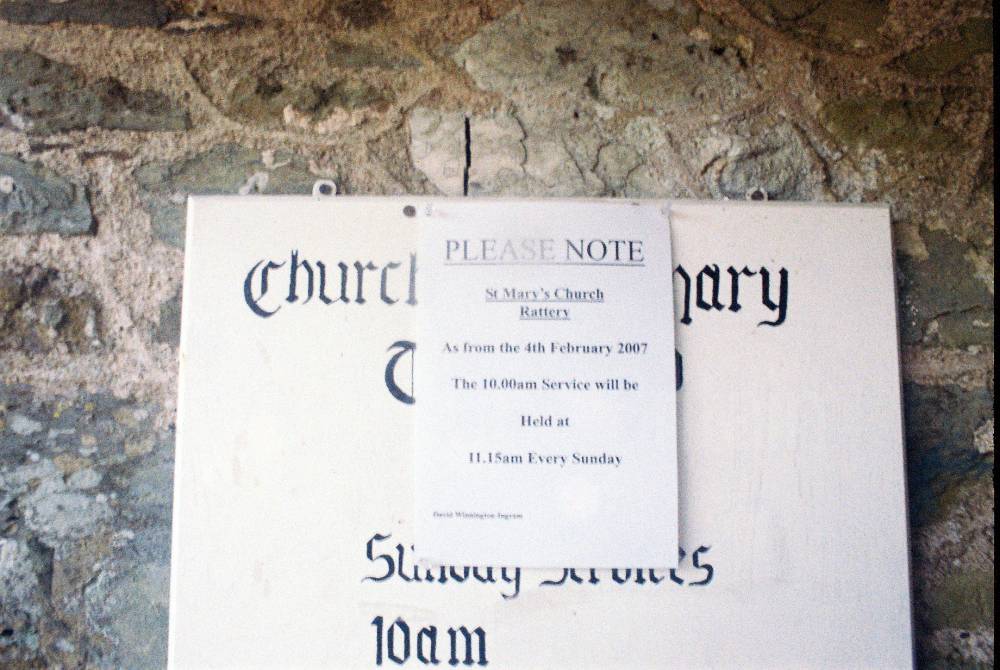 Church
PLEASE NOTE
St Mary's Church
Rattery
As from the 4th February 2007
The 10.00am Service will be
Held at
11.15am Every Sunday
David Winnington-Ingram
Sunday Services
10am